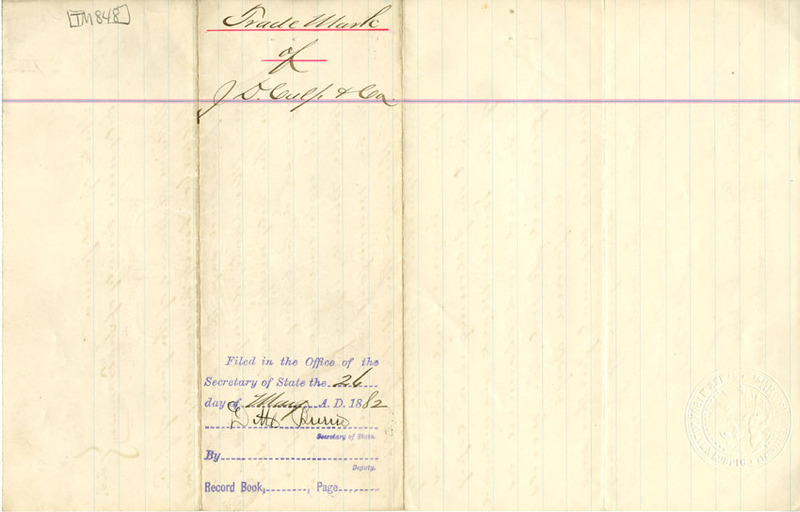 TM848
Trade Mark
of
J. D. Culp & Co.
Filed in the Office of the
Secretary of State the 26
day of May A. D. 1882
Secretary of State.
By
Deputy.
Record Book, Page